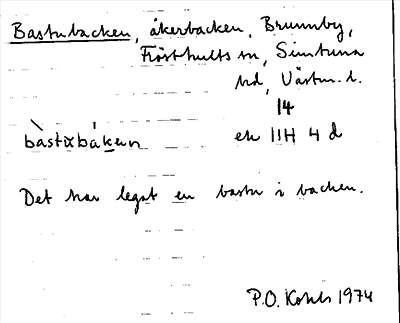 Bastubacken, åkerbacken, Brunnby,
Frösthults sn, Simtuna
hd, Västm. l.
14
bàstʉbákεn
ek 11H 4 d
Det har legat en bastu i backen.
P.O. 1974